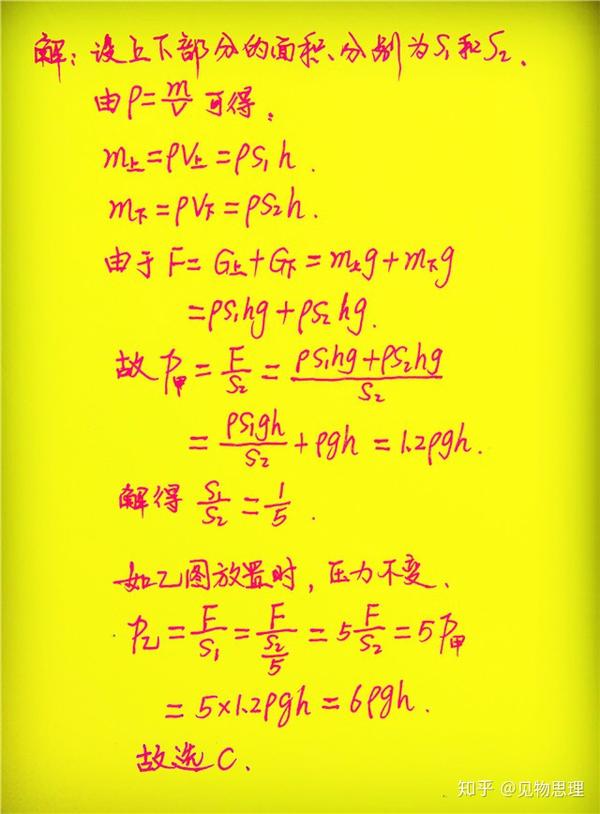 解：设上下部分的面积分别为S₁和S₂．
由ρ=m/V可得：
m上=ρV上=ρS₁h．
m下=ρV下=ρS₂h．
由于F=G上+G下=m上g+m下g
=ρS₁hg+ρS₂hg．
故p甲=F/S₂=(ρS₁hg+ρS₂hg)/S₂
=ρS₁gh/S₂+ρgh=1.2ρgh．
解得S₁/S₂=1/5．
如乙图放置时，压力不变．
p乙=F/S₁=F/(S₂/5)=5F/S₂=5p甲
=5×1.2ρgh=6ρgh．
故选C．
知乎 @见物思理